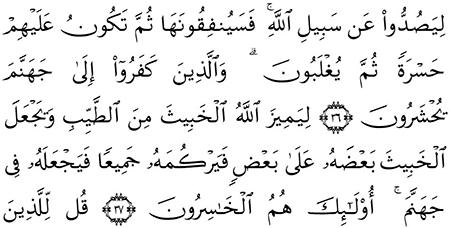 لِيَصُدُّوا۟ عَن سَبِيلِ ٱللَّهِ ۚ فَسَيُنفِقُونَهَا ثُمَّ تَكُونُ عَلَيْهِمْ
حَسْرَةً ثُمَّ يُغْلَبُونَ ۗ وَٱلَّذِينَ كَفَرُوٓا۟ إِلَىٰ جَهَنَّمَ
يُحْشَرُونَ ﴿٣٦﴾ لِيَمِيزَ ٱللَّهُ ٱلْخَبِيثَ مِنَ ٱلطَّيِّبِ وَيَجْعَلَ
ٱلْخَبِيثَ بَعْضَهُۥ عَلَىٰ بَعْضٍ فَيَرْكُمَهُۥ جَمِيعًا فَيَجْعَلَهُۥ فِى
جَهَنَّمَ ۚ أُو۟لَـٰٓئِكَ هُمُ ٱلْخَـٰسِرُونَ ﴿٣٧﴾ قُل لِّلَّذِينَ